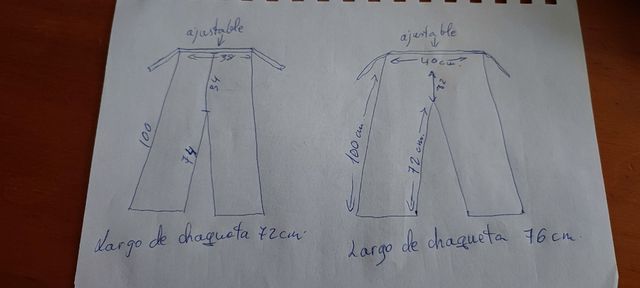 ajustable
38
34
100
74
Largo de chaqueta 72cm.
ajustable
40cm.
32
100 cm
72 cm.
Largo de chaqueta 76 cm.